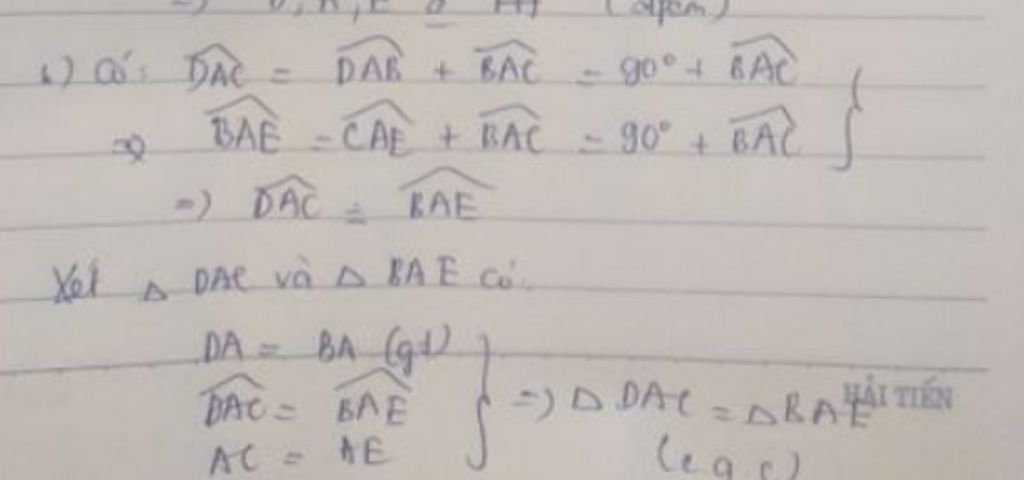 =) D, A, E (đpcm)
b) Có: DAC = DAB + BAC = 90° + BAC
=> BAE = CAE + BAC = 90° + BAC
=) DAC = BAE
Xét △ DAC và △ BAE có:
DA = BA (gt)
DAC = BAE =) △ DAC = △ BAE
HẢI TIẾN
AC = AE (c g c)